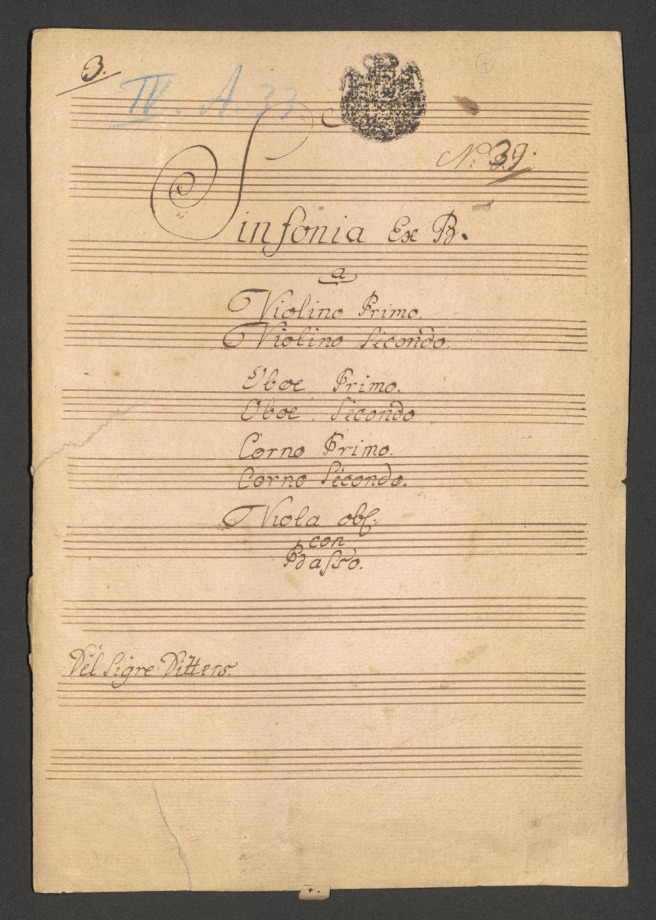 3.
IV. A. 33.
No. 39.
Sinfonia Ex B.
a
Violino Primo.
Violino Secondo.
Oboe Primo.
Oboe Secondo
Corno Primo.
Corno Secondo.
Viola obl:
con
Basso.
Del Sigre Ditters.